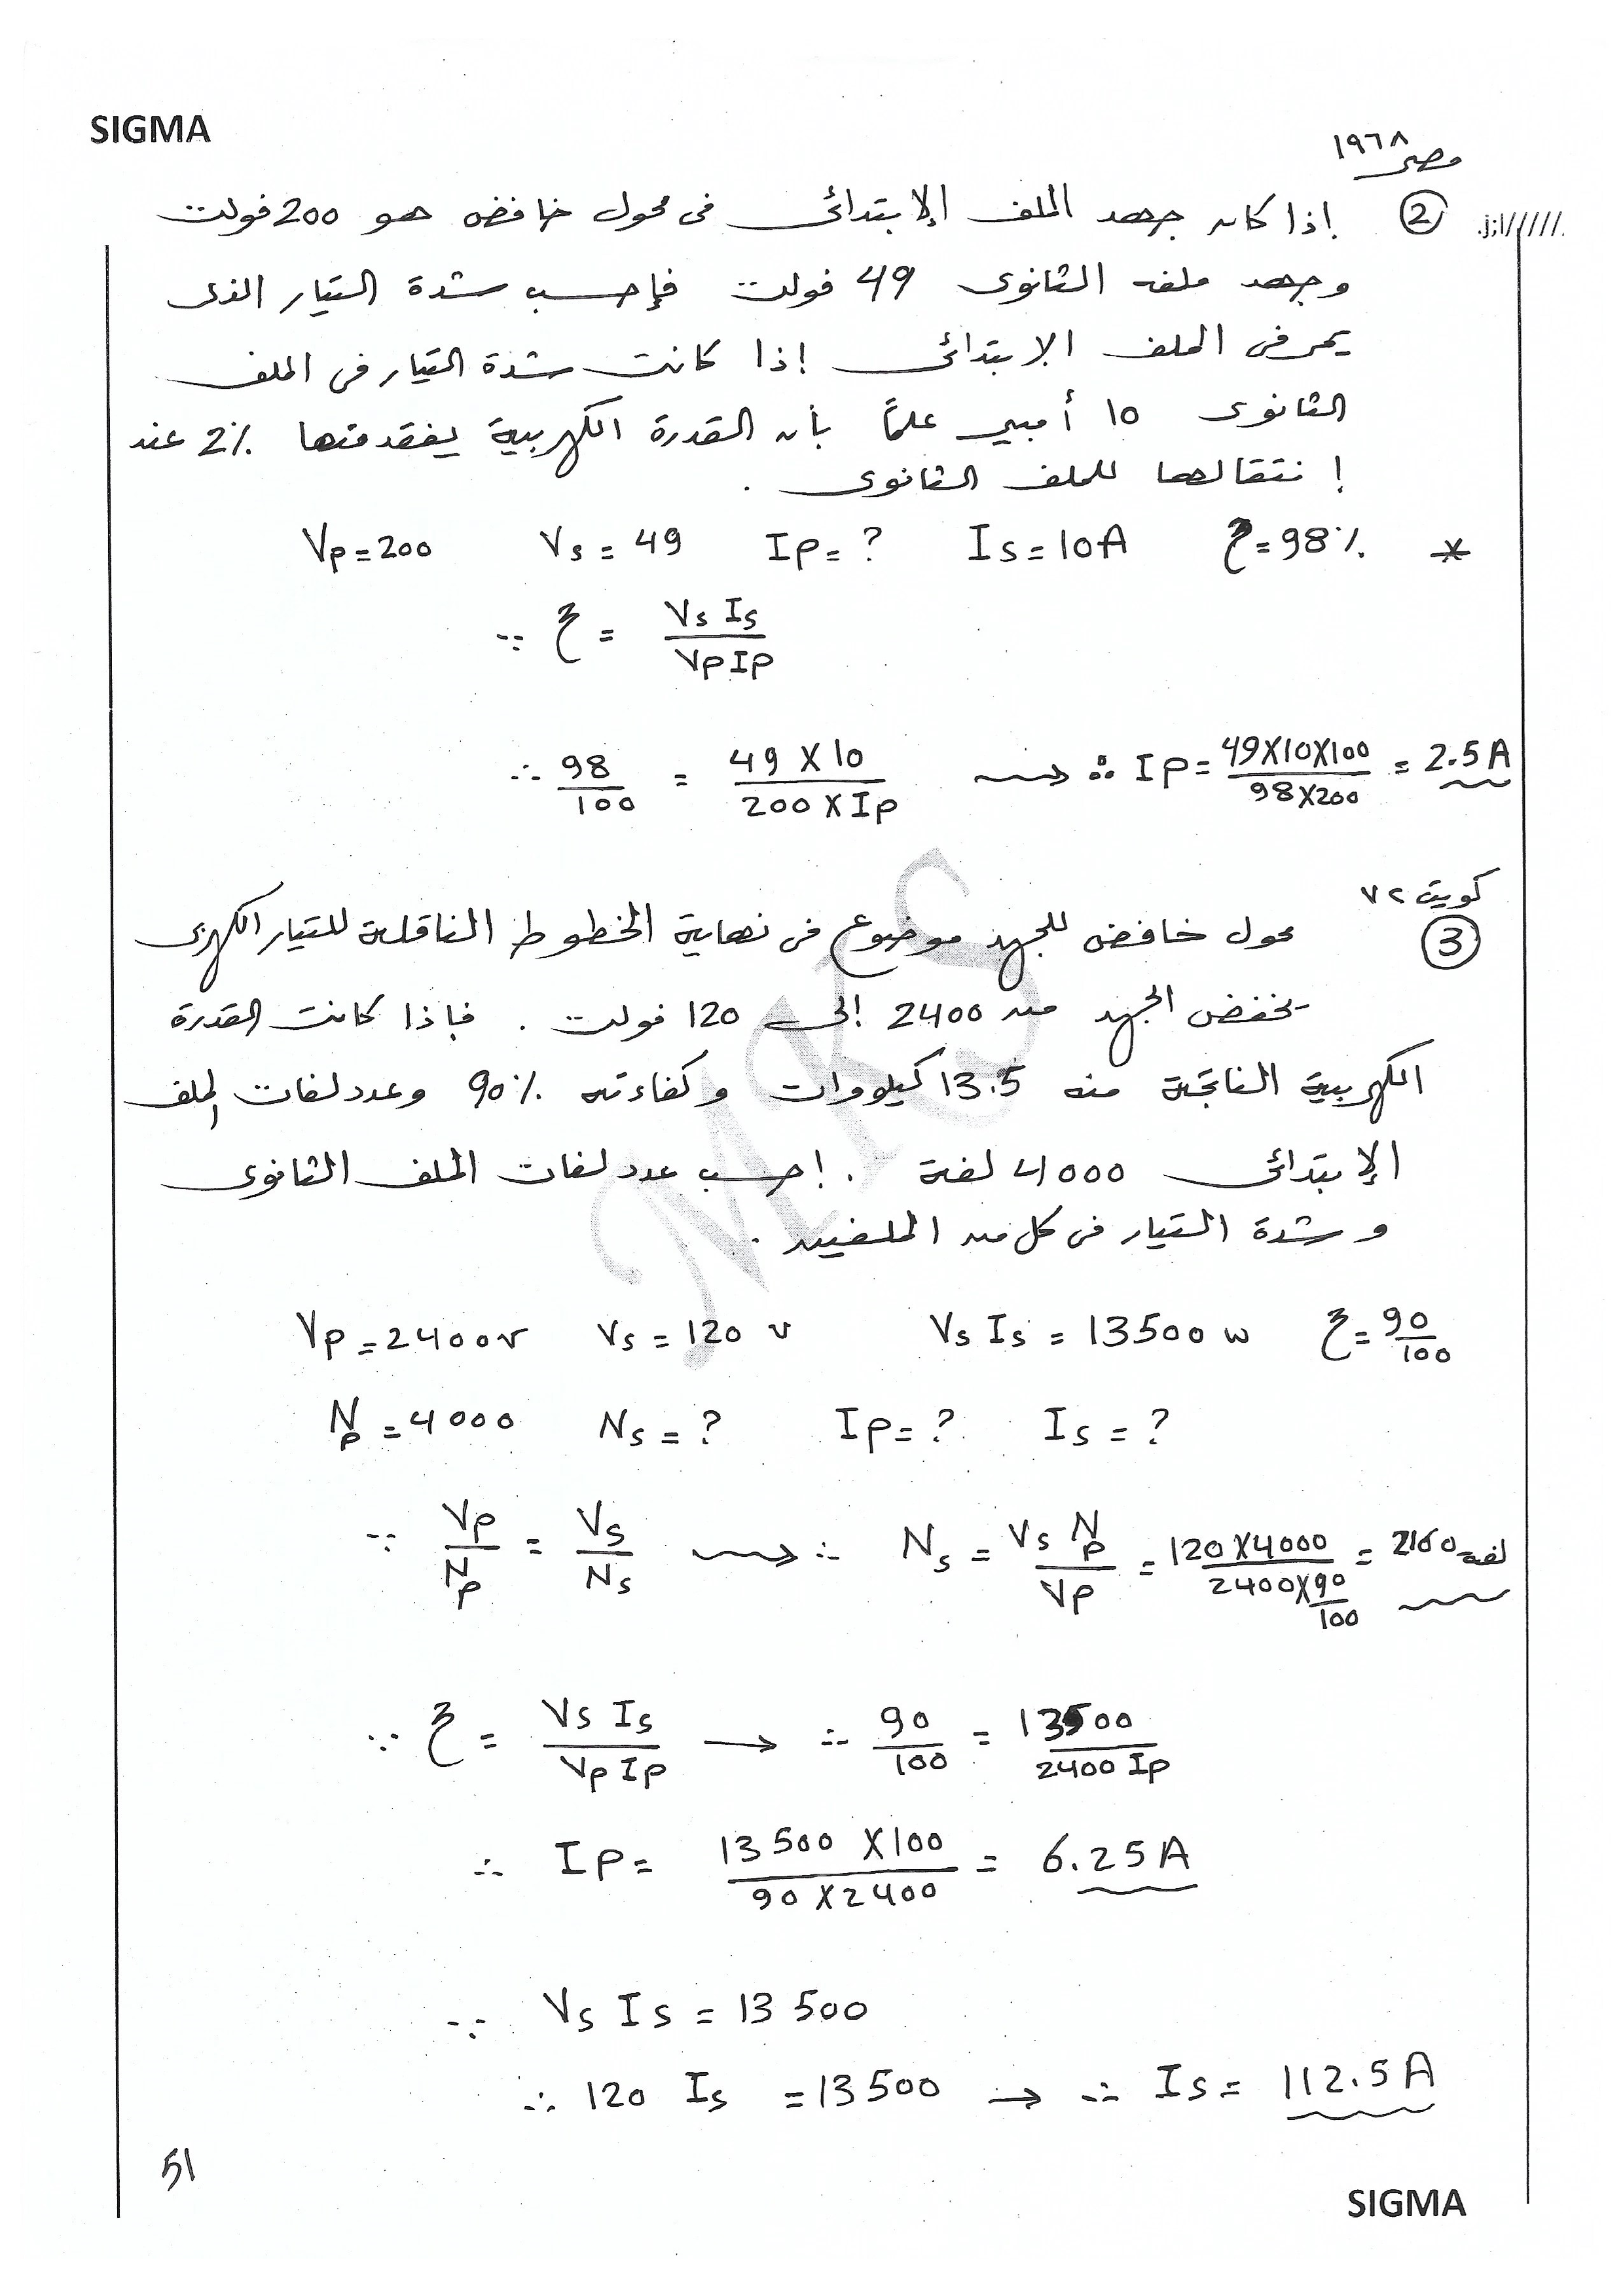 SIGMA
مصر ١٩٦٨
② إذا كان جهد الملف الإبتدائى فى محول خافض هو 200 فولت
وجهد ملفه الثانوى 49 فولت فإحسب شدة التيار الذى
يمر فى الملف الابتدائى إذا كانت شدة التيار فى الملف
الثانوى 10 أمبير علماً بأن القدرة الكهربية يفقد منها 2% عند
إنتقالها للملف الثانوى .
Vp = 200 Vs = 49 Ip = ? Is = 10A η = 98% *
∵ η = Vs Is / Vp Ip
∴ 98/100 = 49 X 10 / 200 X Ip ⟿ ∴ Ip = 49X10X100 / 98X200 = 2.5 A
كويت ٧٢
③ محول خافض للجهد موضوع فى نهاية الخطوط الناقلة للتيار الكهربى
يخفض الجهد من 2400 إلى 120 فولت . فإذا كانت القدرة
الكهربية الناتجة منه 13.5 كيلووات وكفاءته 90% وعدد لفات الملف
الإبتدائى 4000 لفة . إحسب عدد لفات الملف الثانوى
وشدة التيار فى كل من الملفين .
Vp = 2400v Vs = 120 v Vs Is = 13500 w η = 90/100
Np = 4000 Ns = ? Ip = ? Is = ?
∵ Vp/Np = Vs/Ns ⟿ ∴ Ns = Vs Np / Vp = 120X4000 / 2400X90/100 = لفة
∵ η = Vs Is / Vp Ip → ∴ 90/100 = 13500 / 2400 Ip
∴ Ip = 13500 X100 / 90 X 2400 = 6.25A
∵ Vs Is = 13500
∴ 120 Is = 13500 → ∴ Is = 112.5A
51
SIGMA
MKS